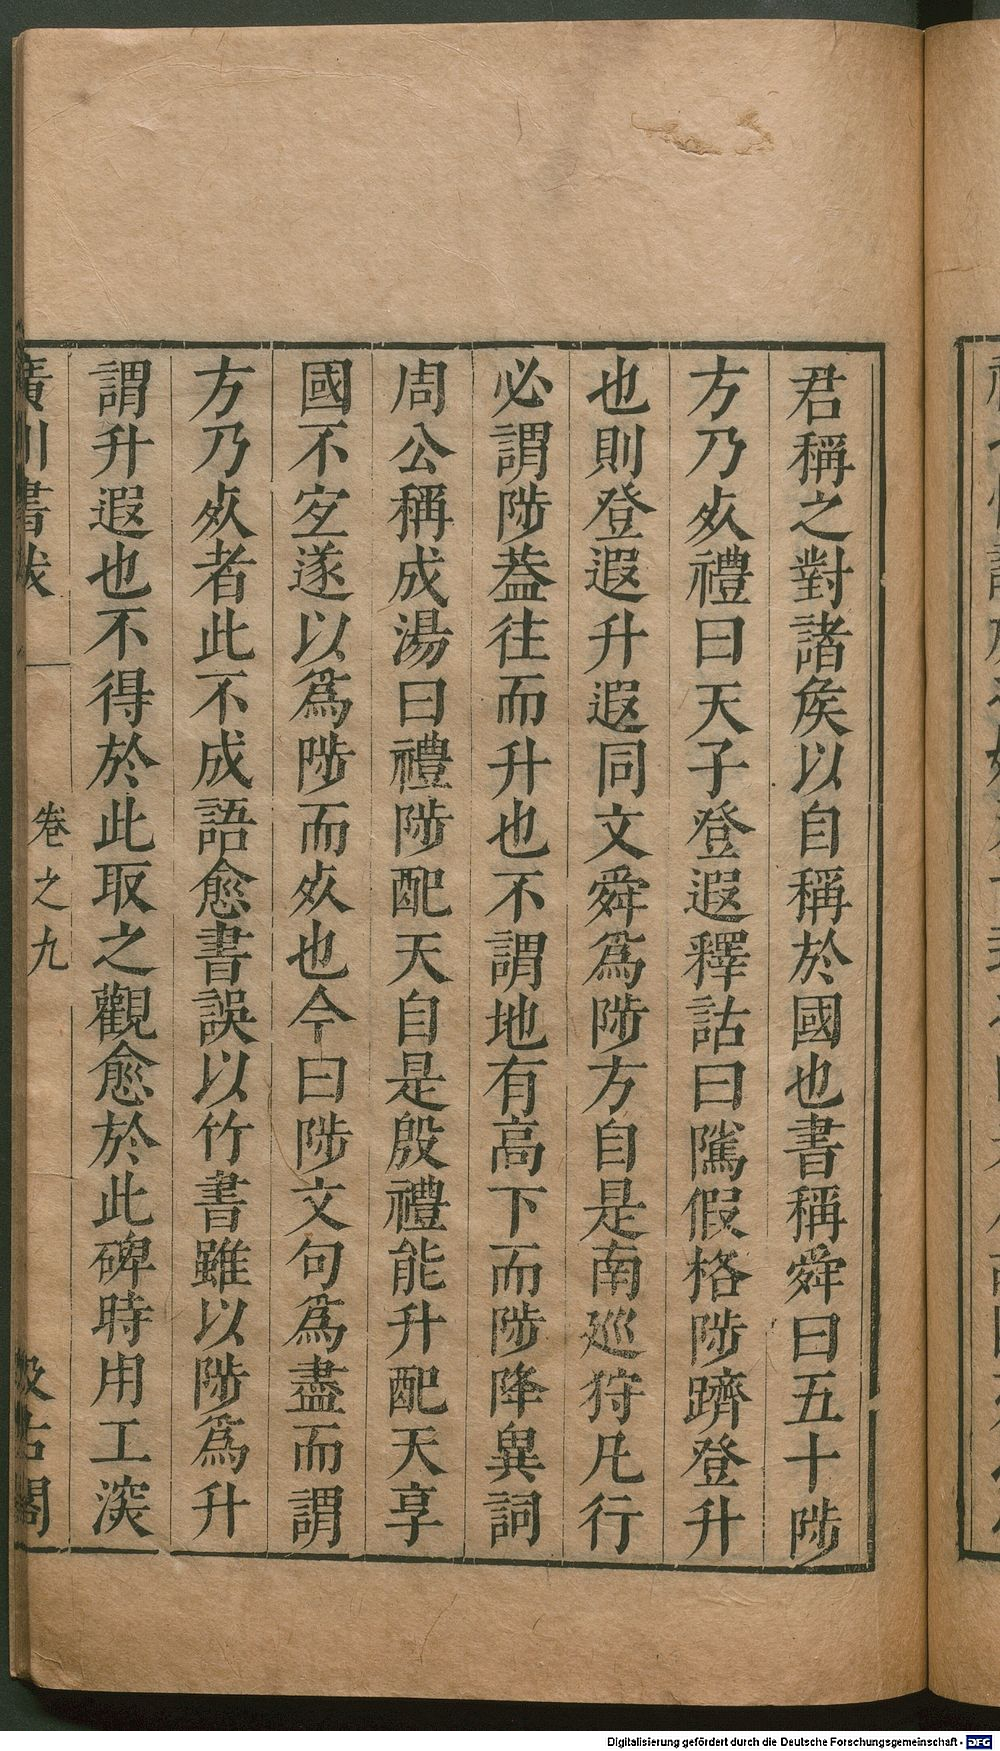 君稱之對諸矦以自稱於國也書稱舜曰五十陟
方乃㱙禮曰天子登遐釋詁曰隲假格陟躋登升
也則登遐升遐同文舜爲陟方自是南巡狩凡行
必謂陟葢往而升也不謂地有高下而陟降異詞
周公稱成湯曰禮陟配天自是殷禮能升配天享
國不㝎遂以爲陟而㱙也今曰陟文句爲盡而謂
方乃㱙者此不成語愈書誤以竹書雖以陟爲升
謂升遐也不得於此取之觀愈於此碑時用工深
廣川書跋
卷之九
汲古閣
Digitalisierung gefördert durch die Deutsche Forschungsgemeinschaft - DFG